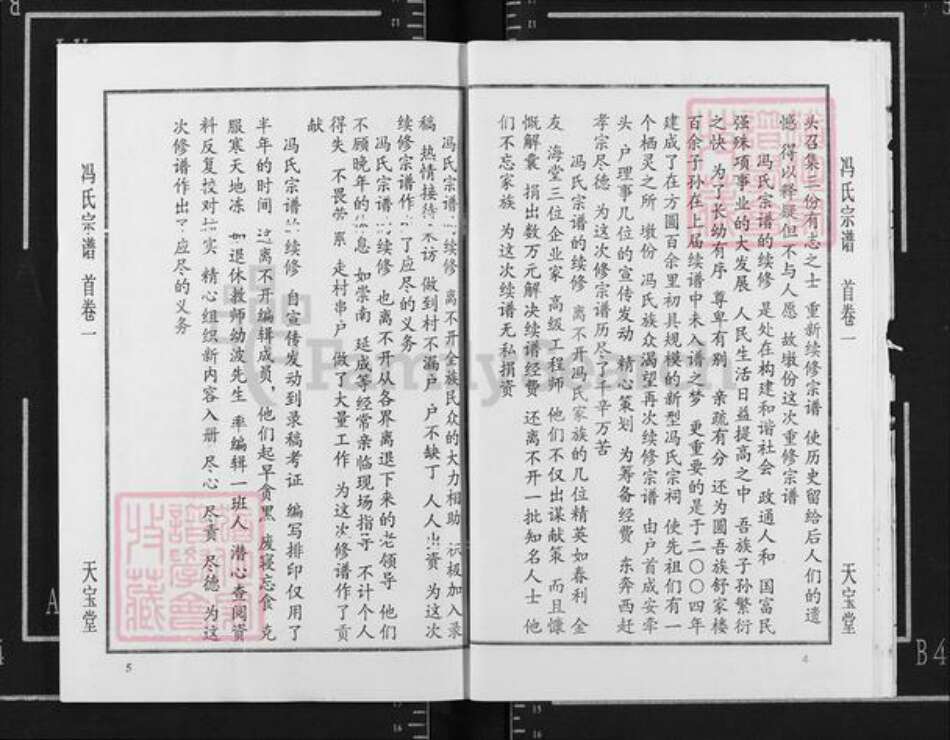 冯氏宗谱 首卷一 天宝堂
头召集三份有志之士 重新续修宗谱 使历史留给后人们的遗
憾 得以释疑但不与人愿 故墩份这次重修宗谱
冯氏宗谱的续修 是处在构建和谐社会 政通人和 国富民
强殊项事业的大发展 人民生活日益提高之中 吾族子孙繁衍
之快 为了长幼有序 尊卑有别 亲疏有分 还为圆吾族舒家楼
百余子孙在上届续谱中未入谱之梦 更重要的是于二〇〇四年
建成了在方圆百余里初具规模的新型冯氏宗祠 使先祖们有一
个栖灵之所 墩份 冯氏族众渴望再次续修宗谱 由户首成安牵
头 户理事几位的宣传发动 精心策划 为筹备经费 东奔西赶
孝宗尽德 为这次修宗谱历尽千辛万苦
冯氏宗谱的续修 离不开冯氏家族的几位精英如春利 金
友 海堂三位企业家 高级工程师 他们不仅出谋献策 而且慷
慨解囊 捐出数万元解决续谱经费 还离不开一批知名人士 他
们不忘家族 为这次续谱无私捐资
4
冯氏宗谱 续修 离不开全族民众的大力相助 积极加入录
稿 热情接待来访 做到村不漏户 户不缺丁 人人出资 为这次
续修宗谱作出了应尽的义务
冯氏宗谱 续修 也离不开从各界离退下来的老领导 他们
不顾晚年的 息 如崇南 延成等经常亲临现场指导 不计个人
得失 不畏劳累 走村串户 做了大量工作 为这次修谱作了贡
献
冯氏宗谱的续修 自宣传发动到录稿考证 编写排印仅用了
半年的时间 这离不开编辑成员，他们起早贪黑 废寝忘食 克
服寒天地冻 如退休教师幼波先生 率编辑一班人 潜心查阅资
料反复校对 实 精心组织新内容入册 尽心 尽责 尽德 为这
次修谱作出了应尽的义务
冯氏宗谱 首卷一 天宝堂
5
FamilySearch
B4
A